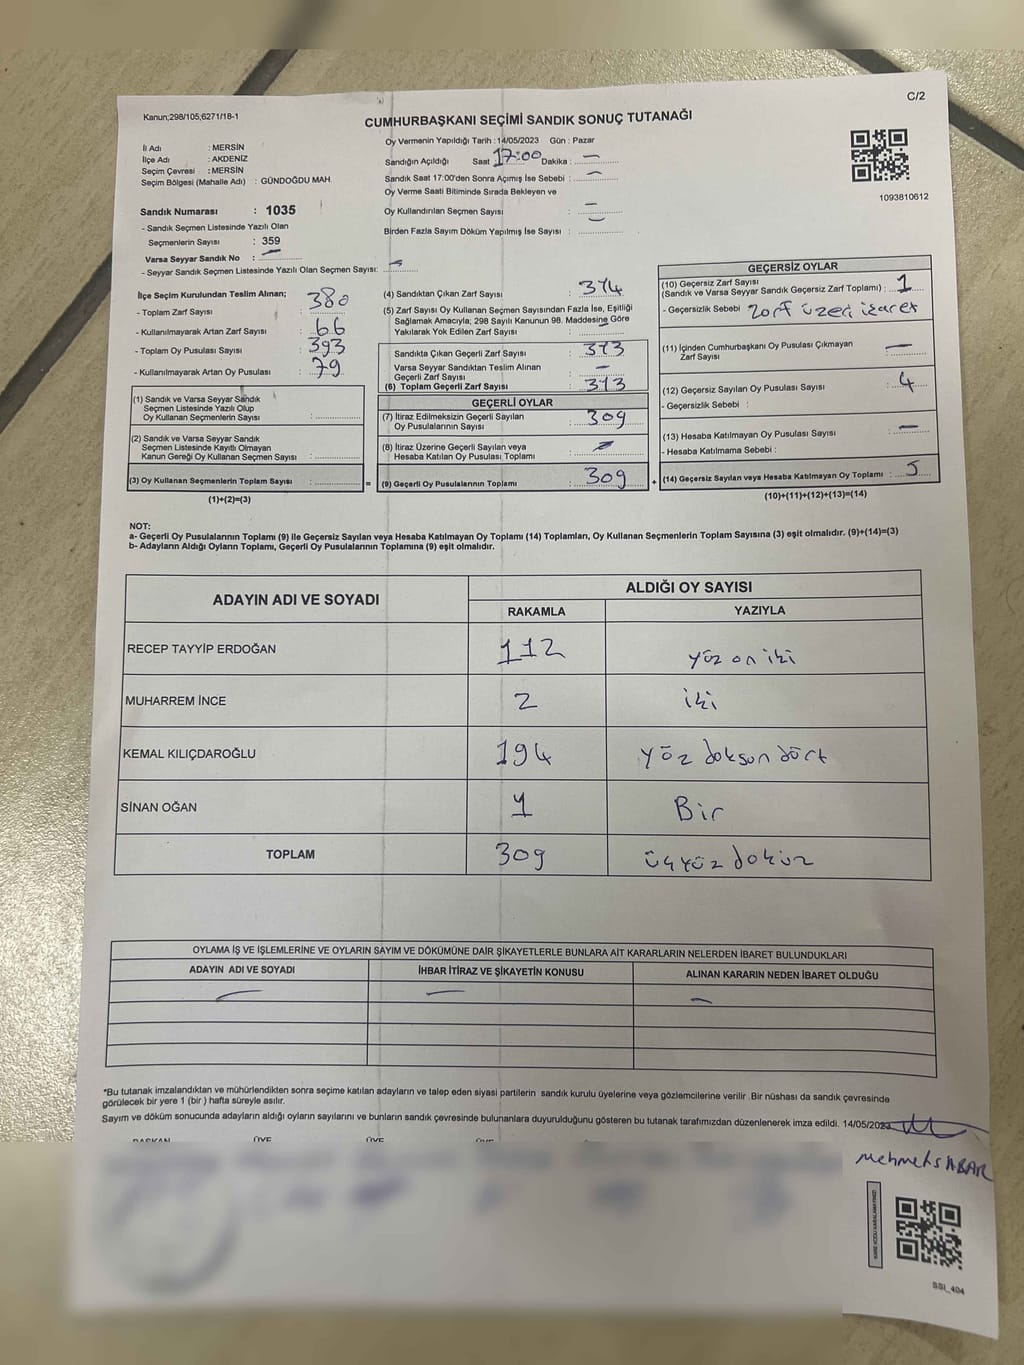 C/2
Kanun;298/105,6271/18-1
CUMHURBAŞKANI SEÇİMİ SANDIK SONUÇ TUTANAĞI
İl Adı : MERSİN
İlçe Adı : AKDENİZ
Seçim Çevresi : MERSİN
Seçim Bölgesi (Mahalle Adı) : GÜNDOĞDU MAH.
Oy Vermenin Yapıldığı Tarih : 14/05/2023 Gün : Pazar
Sandığın Açıldığı Saat 17:00 Dakika : —
Sandık Saat 17:00'den Sonra Açımış İse Sebebi : —
Oy Verme Saati Bitiminde Sırada Bekleyen ve
Oy Kullandırılan Seçmen Sayısı : —
Birden Fazla Sayım Döküm Yapılmış İse Sayısı : —
1093810612
Sandık Numarası : 1035
- Sandık Seçmen Listesinde Yazılı Olan
Seçmenlerin Sayısı : 359
Varsa Seyyar Sandık No : —
- Seyyar Sandık Seçmen Listesinde Yazılı Olan Seçmen Sayısı: —
İlçe Seçim Kurulundan Teslim Alınan;
- Toplam Zarf Sayısı : 380
- Kullanılmayarak Artan Zarf Sayısı : 66
- Toplam Oy Pusulası Sayısı : 393
- Kullanılmayarak Artan Oy Pusulası : 79
(1) Sandık ve Varsa Seyyar Sandık
Seçmen Listesinde Yazılı Olup
Oy Kullanan Seçmenlerin Sayısı :
(2) Sandık ve Varsa Seyyar Sandık
Seçmen Listesinde Kayıtlı Olmayan
Kanun Gereği Oy Kullanan Seçmen Sayısı :
(3) Oy Kullanan Seçmenlerin Toplam Sayısı : =
(1)+(2)=(3)
(4) Sandıktan Çıkan Zarf Sayısı : 314
(5) Zarf Sayısı Oy Kullanan Seçmen Sayısından Fazla İse, Eşitliği
Sağlamak Amacıyla; 298 Sayılı Kanunun 98. Maddesine Göre
Yakılarak Yok Edilen Zarf Sayısı : —
Sandıkta Çıkan Geçerli Zarf Sayısı : 313
Varsa Seyyar Sandıktan Teslim Alınan
Geçerli Zarf Sayısı : —
(6) Toplam Geçerli Zarf Sayısı : 313
GEÇERLİ OYLAR
(7) İtiraz Edilmeksizin Geçerli Sayılan
Oy Pusulalarının Sayısı : 309
(8) İtiraz Üzerine Geçerli Sayılan veya
Hesaba Katılan Oy Pusulası Toplamı : —
(9) Geçerli Oy Pusulalarının Toplamı : 309 +
GEÇERSİZ OYLAR
(10) Geçersiz Zarf Sayısı
(Sandık ve Varsa Seyyar Sandık Geçersiz Zarf Toplamı) : 1
- Geçersizlik Sebebi zarf üzeri işaret
(11) İçinden Cumhurbaşkanı Oy Pusulası Çıkmayan
Zarf Sayısı : —
(12) Geçersiz Sayılan Oy Pusulası Sayısı : 4
- Geçersizlik Sebebi :
(13) Hesaba Katılmayan Oy Pusulası Sayısı : —
- Hesaba Katılmama Sebebi :
(14) Geçersiz Sayılan veya Hesaba Katılmayan Oy Toplamı : 5
(10)+(11)+(12)+(13)=(14)
NOT:
a- Geçerli Oy Pusulalarının Toplamı (9) ile Geçersiz Sayılan veya Hesaba Katılmayan Oy Toplamı (14) Toplamları, Oy Kullanan Seçmenlerin Toplam Sayısına (3) eşit olmalıdır. (9)+(14)=(3)
b- Adayların Aldığı Oyların Toplamı, Geçerli Oy Pusulalarının Toplamına (9) eşit olmalıdır.
ADAYIN ADI VE SOYADI ALDIĞI OY SAYISI
RAKAMLA YAZIYLA
RECEP TAYYİP ERDOĞAN 112 yüz on iki
MUHARREM İNCE 2 iki
KEMAL KILIÇDAROĞLU 194 yüz doksan dört
SİNAN OĞAN 1 Bir
TOPLAM 309 üçyüz dokuz
OYLAMA İŞ VE İŞLEMLERİNE VE OYLARIN SAYIM VE DÖKÜMÜNE DAİR ŞİKAYETLERLE BUNLARA AİT KARARLARIN NELERDEN İBARET BULUNDUKLARI
ADAYIN ADI VE SOYADI İHBAR İTİRAZ VE ŞİKAYETİN KONUSU ALINAN KARARIN NEDEN İBARET OLDUĞU
— — —
*Bu tutanak imzalandıktan ve mühürlendikten sonra seçime katılan adayların ve talep eden siyasi partilerin sandık kurulu üyelerine veya gözlemcilerine verilir .Bir nüshası da sandık çevresinde
görülecek bir yere 1 (bir ) hafta süreyle asılır.
Sayım ve döküm sonucunda adayların aldığı oyların sayılarını ve bunların sandık çevresinde bulunanlara duyurulduğunu gösteren bu tutanak tarafımızdan düzenlenerek imza edildi. 14/05/2023
BAŞKAN ÜYE ÜYE ÜYE
SSI_404